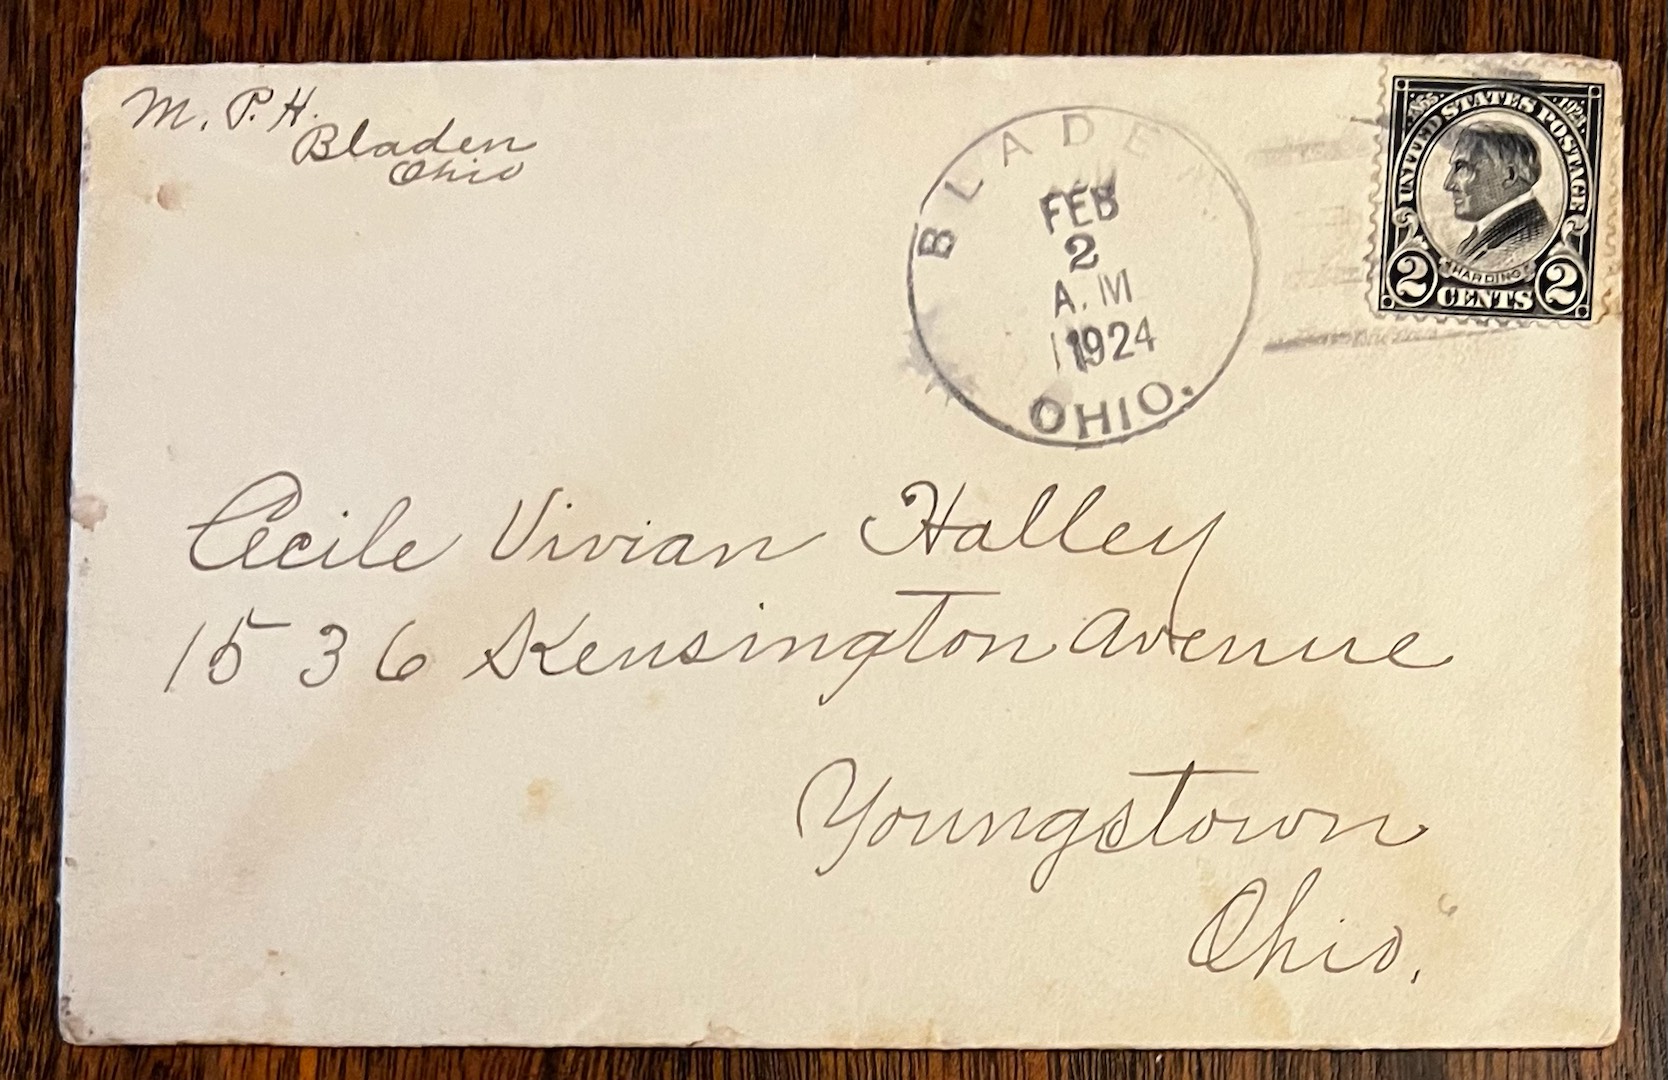 M. P. H.
Bladen
Ohio
BLADE
FEB
2
A.M
1924
OHIO.
1865. 1923.
UNITED STATES POSTAGE
HARDING
2 CENTS 2
Cecile Vivian Halley
1536 Kensington Avenue
Youngstown
Ohio.